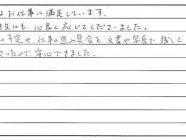 お仕事に満足しています。
にも、心良く応じてくださいました。
予定や仕事の進み具合を文書や写真で残して
ったので、安心できました。